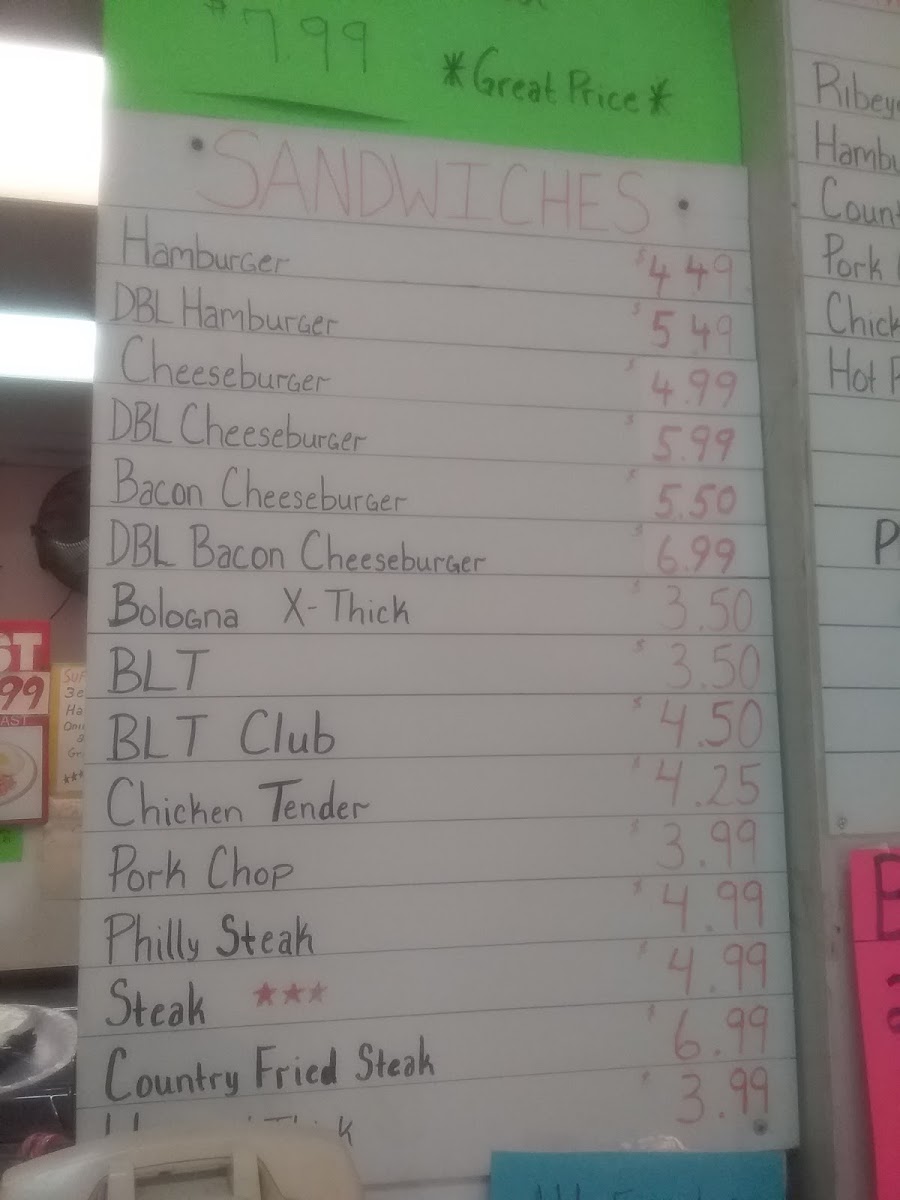 $7.99
*Great Price*
• SANDWICHES •
Hamburger $4.49
DBL Hamburger $5.49
Cheeseburger $4.99
DBL Cheeseburger $5.99
Bacon Cheeseburger $5.50
DBL Bacon Cheeseburger $6.99
Bologna X-Thick $3.50
BLT $3.50
BLT Club $4.50
Chicken Tender $4.25
Pork Chop $3.99
Philly Steak $4.99
Steak *** $4.99
Country Fried Steak $6.99
$3.99
Pork
Hot
99